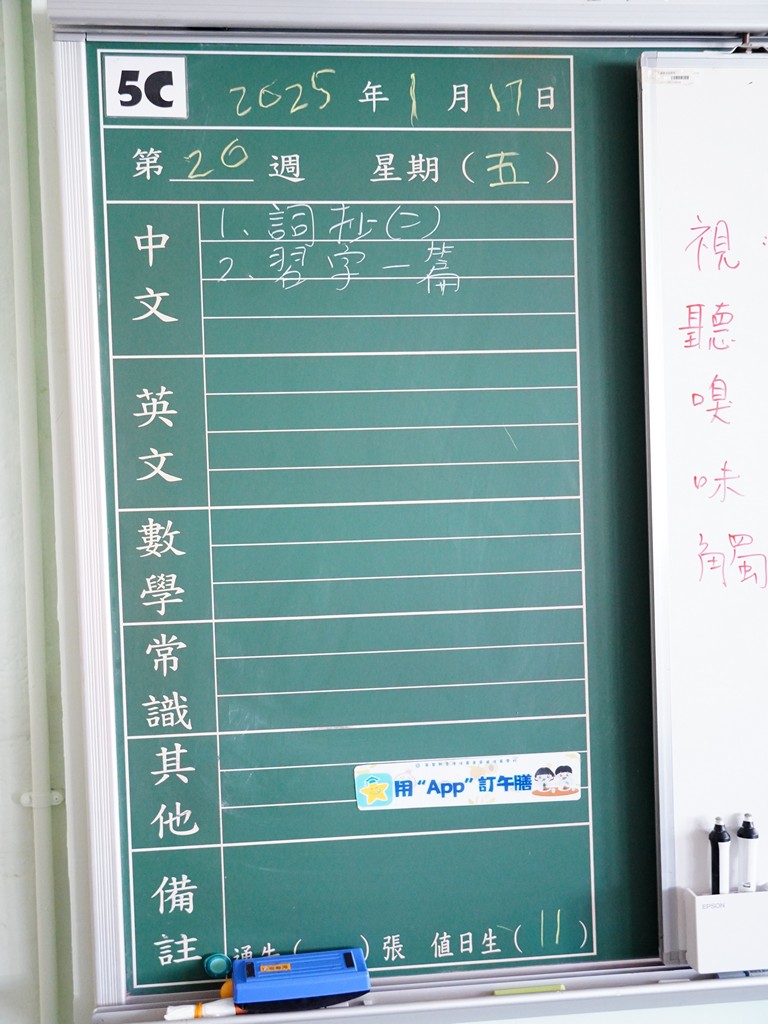 5C 2025年1月17日
第20週 星期(五)
中文
1. 詞抄(二)
2. 習字一篇
英文
數學
常識
其他
用“App”訂午膳
備註
通告( )張 值日生(11)
視
聽
嗅
味
觸
EPSON